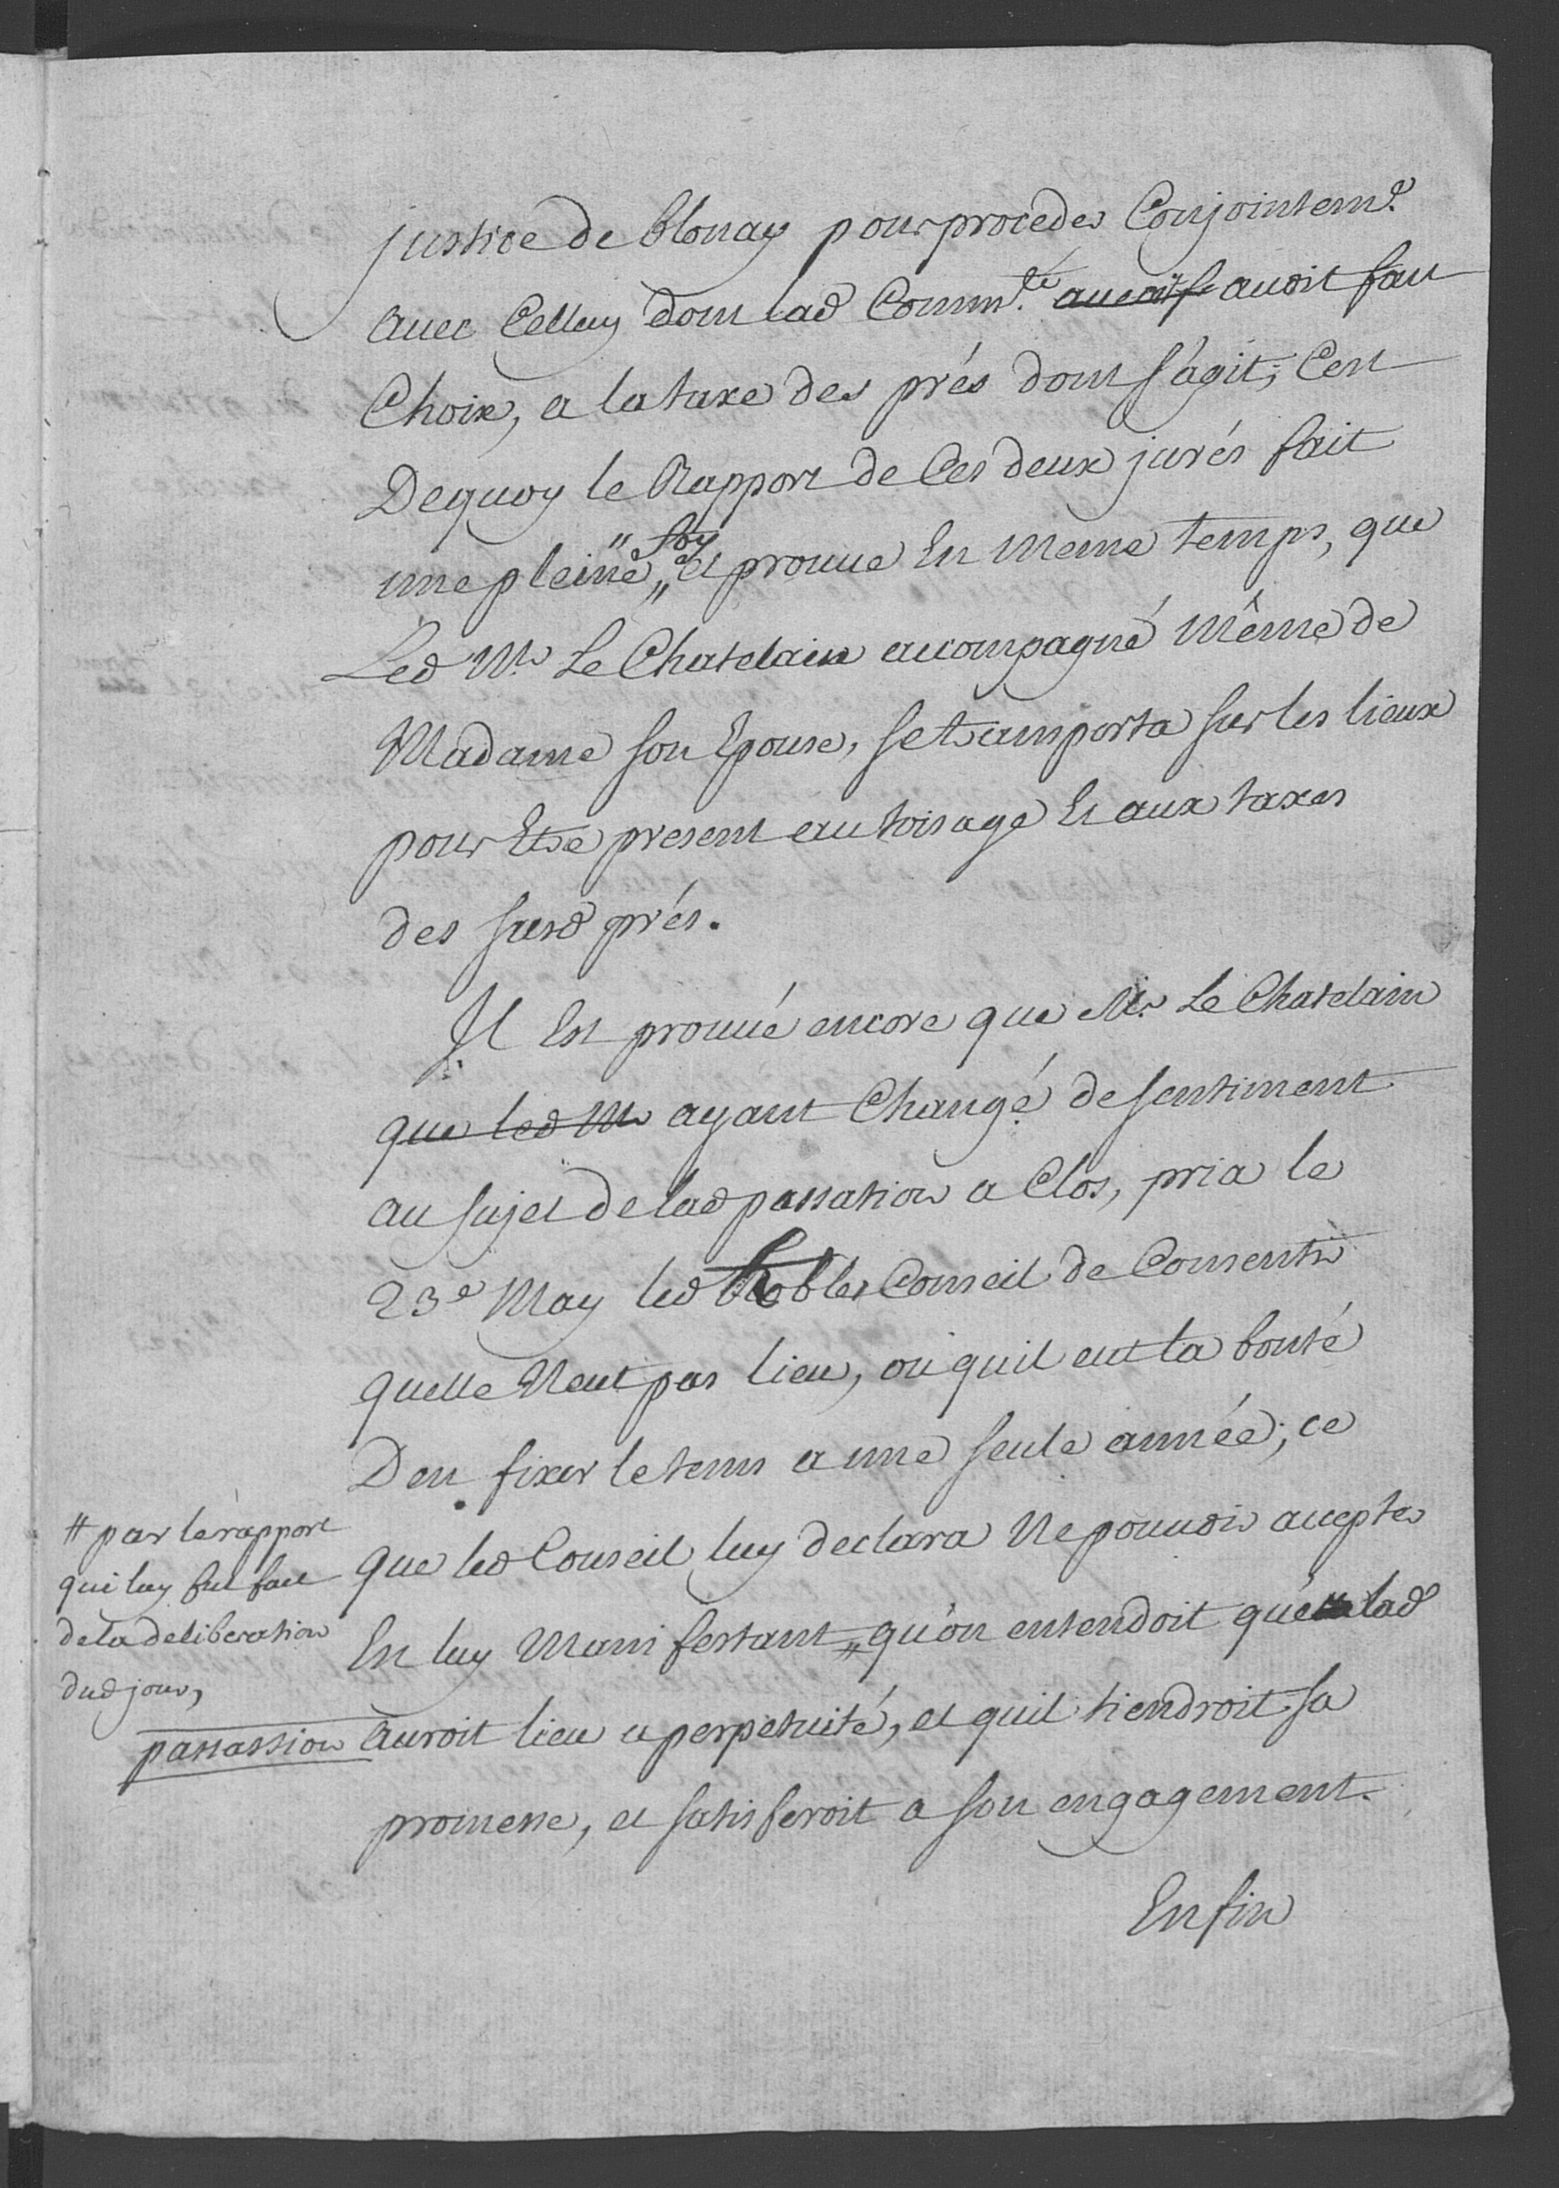 justice de blonay pour proceder Conjointem.t
avec Celluy dont lad Comm.té avoit fait
Choix, a la taxe des prés dont s'agit; C'est
Dequoy le Rapport de Ces deux jurés fait
une pleine " foy " et prouve En meme temps, que
Led Mr. Le Chatelain accompagné même de
Madame son Epouse, se transporta sur les lieux
pour Etre present au toisage Et aux taxes
des susd prés.
Il Est prouvé encore que Mr. Le Chatelain
que led Mr ayant Changé de sentiment
au sujet de lad passation a Clos, pria le
23e May led Noble Conseil de Consentir
quelle N'eut pas lieu, ou quil eut la bonté
D'en fixer le tems a une seule année; ce
que led Conseil luy declara Ne pouvoir accepter
En luy Manifestant # qu'on entendoit que lad
# par le rapport
qui luy fut fait
de la deliberation
dud jour,
passassion auroit lieu a perpetuité, et quil tiendroit sa
promesse, et satisferoit a son engagement.
Enfin